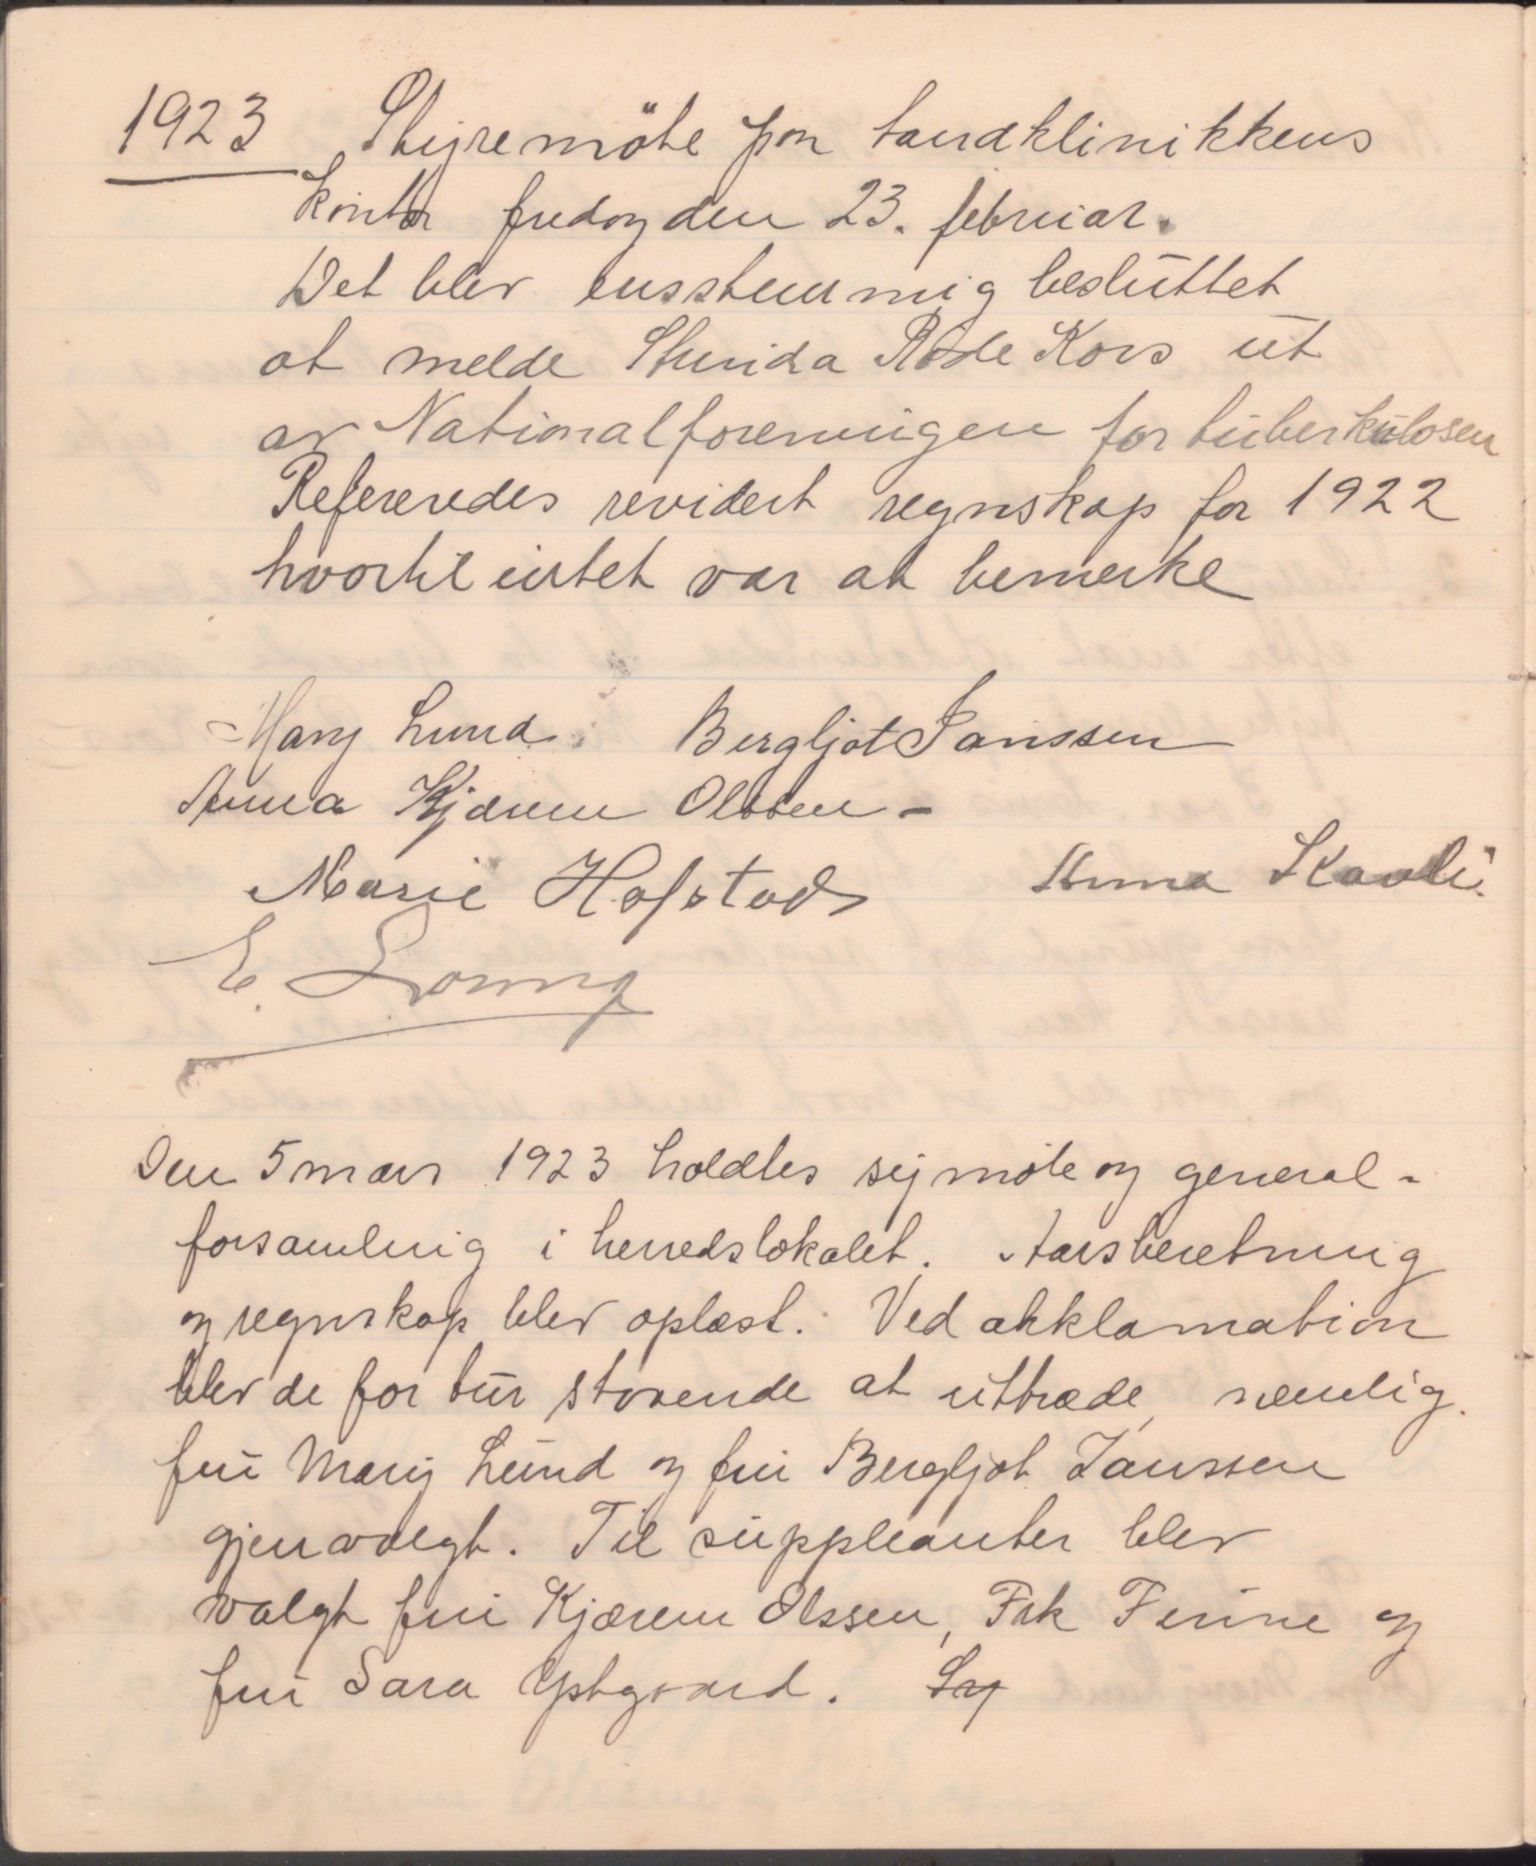 1923 Styremöte paa tandklinikkens
kontor fredag den 23. februar.
Det blev ensstemmig besluttet
at melde Skurida Röde Kors ut
av Nationalforeningen for tuberkulosen
Refereredes revidert regnskap for 1922
hvortil intet var at bemerke
Mary Lund. Bergljot Janssen
Anna Kjærem Olssen -
Marie Hofstad Anna Skavli
E.
Den 5 mars 1923 holdtes symöte og general-
forsamling i herredslokalet. Aarsberetning
og regnskap blev oplæst. Ved akklamation
blev de for tur staaende at uttræde, nemlig
fru Mary Lund og fru Bergljot Janssen
gjenvalgt. Til suppleanter blev
valgt fru Kjærem Olssen, Frk Ferine og
fru Sara Ystgaard.